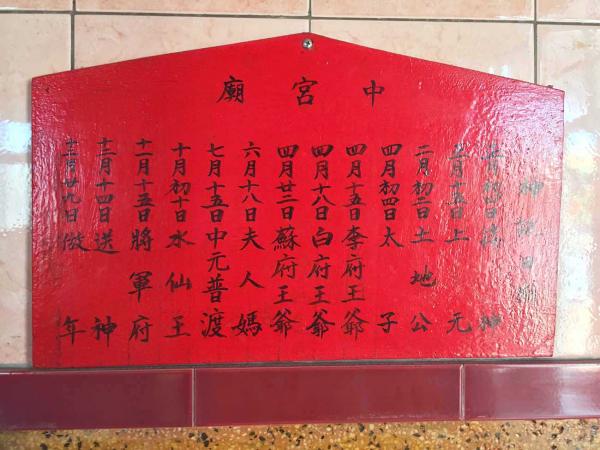 中宮廟
神誕日期
正月初四日接神
正月十五日上元
二月初二日土地公
四月初四日太子
四月十五日李府王爺
四月十八日白府王爺
四月廿三日蘇府王爺
六月十八日夫人媽
七月十五日中元普渡
十月初十日水仙王
十一月十五日將軍府
十二月十四日送神
十二月廿九日做年